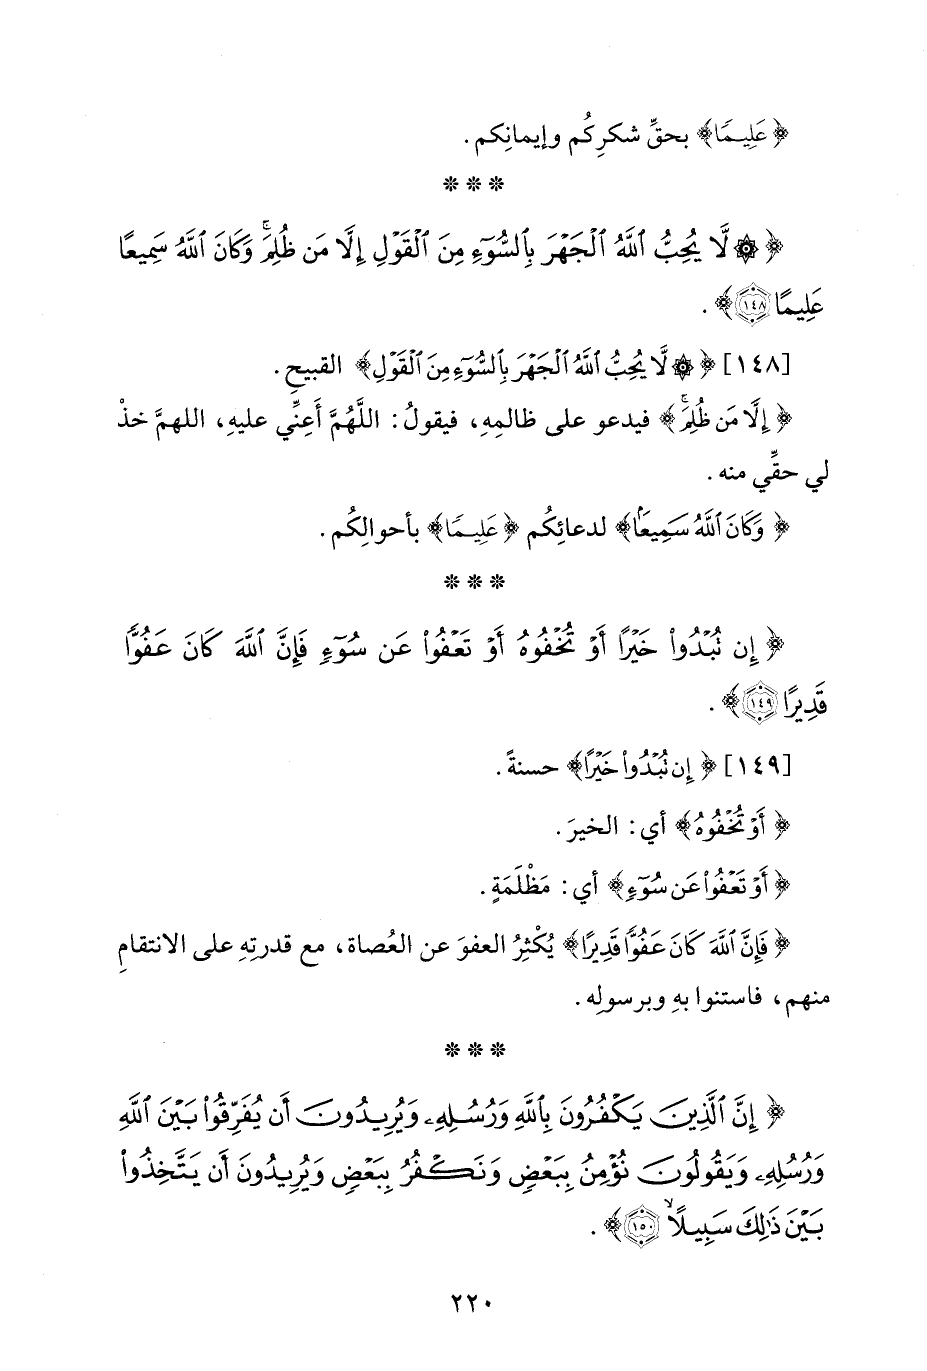 ﴿عَلِيمًا﴾ بحقِّ شكرِكُم وإيمانِكم.
* * *
﴿۞ لَّا يُحِبُّ ٱللَّهُ ٱلْجَهْرَ بِٱلسُّوٓءِ مِنَ ٱلْقَوْلِ إِلَّا مَن ظُلِمَ ۚ وَكَانَ ٱللَّهُ سَمِيعًا
عَلِيمًا ١٤٨﴾.
[١٤٨] ﴿۞ لَّا يُحِبُّ ٱللَّهُ ٱلْجَهْرَ بِٱلسُّوٓءِ مِنَ ٱلْقَوْلِ﴾ القبيحِ.
﴿إِلَّا مَن ظُلِمَ ۚ﴾ فيدعو على ظالمِهِ، فيقولُ: اللَّهُمَّ أَعِنِّي عليهِ، اللهمَّ خذْ
لي حقِّي منه.
﴿وَكَانَ ٱللَّهُ سَمِيعًا﴾ لدعائِكُم ﴿عَلِيمًا﴾ بأحوالِكُم.
* * *
﴿إِن تُبْدُوا۟ خَيْرًا أَوْ تُخْفُوهُ أَوْ تَعْفُوا۟ عَن سُوٓءٍ فَإِنَّ ٱللَّهَ كَانَ عَفُوًّا
قَدِيرًا ١٤٩﴾.
[١٤٩] ﴿إِن تُبْدُوا۟ خَيْرًا﴾ حسنةً.
﴿أَوْ تُخْفُوهُ﴾ أي: الخيرَ.
﴿أَوْ تَعْفُوا۟ عَن سُوٓءٍ﴾ أي: مَظْلَمَةٍ.
﴿فَإِنَّ ٱللَّهَ كَانَ عَفُوًّا قَدِيرًا﴾ يُكْثِرُ العفوَ عن العُصاة، مع قدرتِهِ على الانتقامِ
منهم، فاستنوا بهِ وبرسولِه.
* * *
﴿إِنَّ ٱلَّذِينَ يَكْفُرُونَ بِٱللَّهِ وَرُسُلِهِۦ وَيُرِيدُونَ أَن يُفَرِّقُوا۟ بَيْنَ ٱللَّهِ
وَرُسُلِهِۦ وَيَقُولُونَ نُؤْمِنُ بِبَعْضٍ وَنَكْفُرُ بِبَعْضٍ وَيُرِيدُونَ أَن يَتَّخِذُوا۟
بَيْنَ ذَٰلِكَ سَبِيلًا ۙ ١٥٠﴾.
٢٢٠